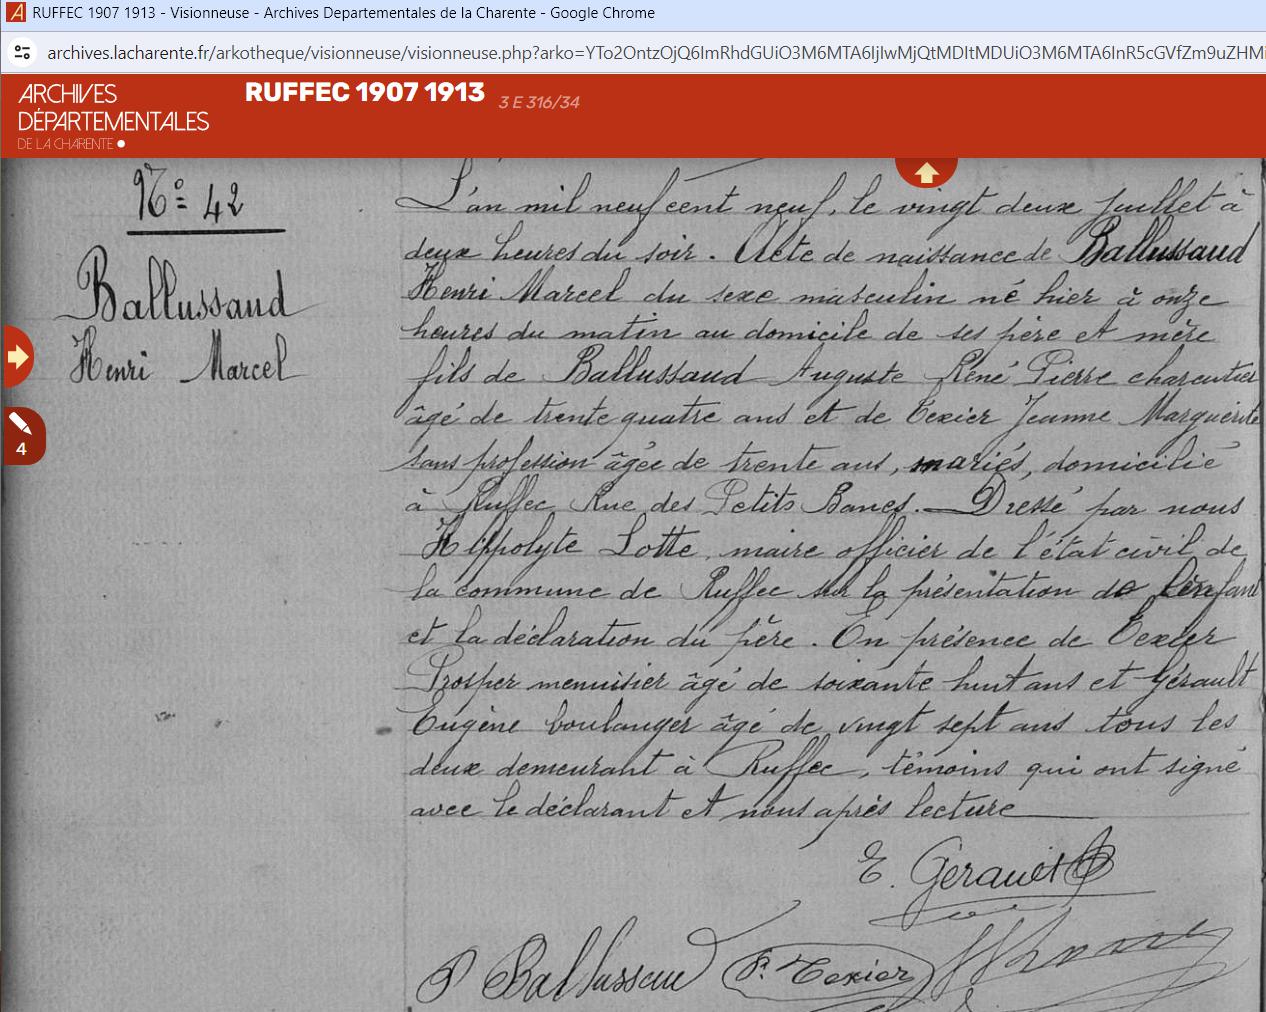 RUFFEC 1907 1913 - Visionneuse - Archives Departementales de la Charente - Google Chrome
archives.lacharente.fr/arkotheque/visionneuse/visionneuse.php?arko=YTo2OntzOjQ6ImRhdGUiO3M6MTA6IjIwMjQtMDItMDUiO3M6MTA6InR5cGVfZm9uZHMi
ARCHIVES
DÉPARTEMENTALES
DE LA CHARENTE
RUFFEC 1907 1913 3 E 316/34
4
N° 42
Ballussaud
Henri Marcel
L'an mil neuf cent neuf, le vingt deux juillet à
deux heures du soir. Acte de naissance de Ballussaud
Henri Marcel du sexe masculin né hier à onze
heures du matin au domicile de ses père et mère
fils de Ballussaud Auguste Réné Pierre charcutier
âgé de trente quatre ans et de Texier Jeanne Marguerite
sans profession âgée de trente ans, mariés, domicilié
à Ruffec Rue des Petits Bancs. Dressé par nous
Hippolyte Lotte, maire officier de l'état civil de
la commune de Ruffec sur la présentation de l'enfant
et la déclaration du père. En présence de Texier
Prosper menuisier âgé de soixante huit ans et Gérault
Eugène boulanger âgé de vingt sept ans tous les
deux demeurant à Ruffec, témoins qui ont signé
avec le déclarant et nous après lecture
E. Gerault
P. Texier